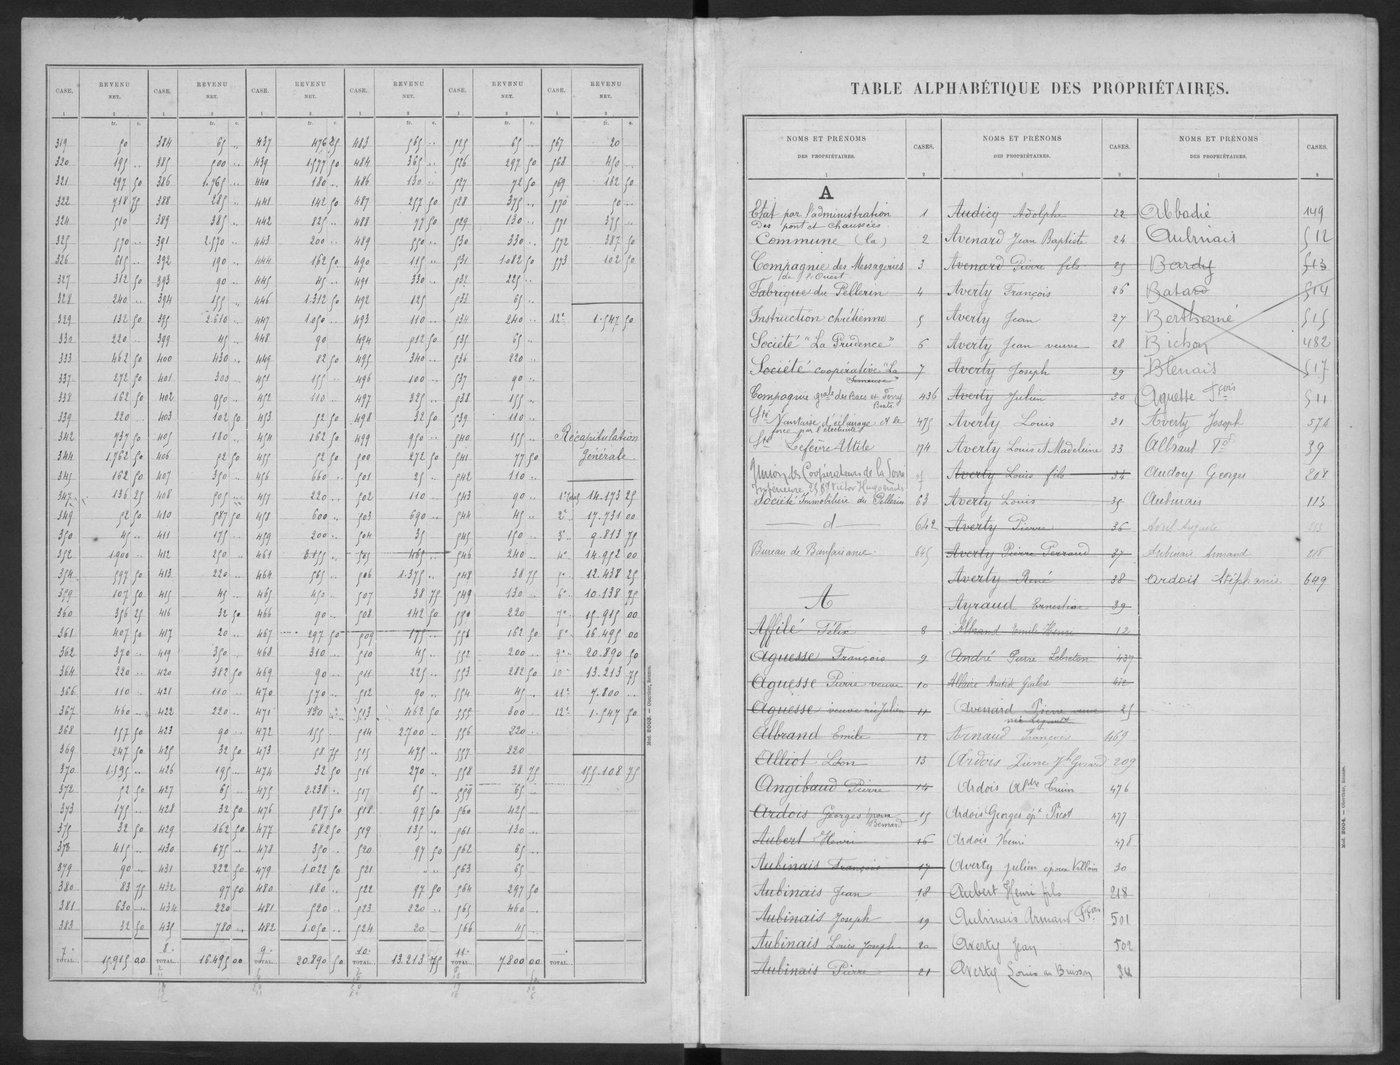 CASE. REVENU NET. CASE. REVENU NET. CASE. REVENU NET. CASE. REVENU NET. CASE. REVENU NET. CASE. REVENU NET.
1 2 1 2 1 2 1 2 1 2 1 2
fr. c. fr. c. fr. c. fr. c. fr. c. fr. c.
319 50 384 65 " 437 476 25 483 565 " 525 65 " 567 20
320 195 " 385 500 " 439 1.577 50 484 365 " 526 297 50 568 450 "
321 297 50 386 1.765 " 440 180 " 486 130 " 527 72 50 569 182 50
322 718 75 388 285 " 441 142 50 487 257 50 528 375 " 570 50 "
324 510 " 389 385 " 442 125 " 488 77 50 529 130 " 571 375 "
325 570 " 391 2.570 " 443 200 " 489 550 " 530 330 " 572 387 50
326 615 " 392 190 " 444 162 50 490 115 " 531 1082 50 573 102 50
327 312 50 393 90 " 445 45 " 491 330 " 532 225 "
328 240 " 394 155 " 446 1.312 50 492 125 " 532 65 "
329 132 50 395 2.610 " 447 1.050 " 493 110 " 534 240 " 12e 1.547 50
330 220 " 399 45 " 448 90 " 494 912 50 535 65 "
333 462 50 400 430 " 449 82 50 495 340 " 536 220 "
337 272 50 401 300 " 451 155 " 496 100 " 537 90 "
338 162 50 402 950 " 452 110 " 497 325 " 538 155 "
339 220 " 403 102 50 453 52 50 498 32 50 539 110 "
342 737 50 405 180 " 454 162 50 499 950 " 540 155 " Récapitulation
344 1.762 50 406 52 50 455 52 50 500 272 50 541 77 50 Générale.
345 162 50 407 350 " 456 660 " 501 25 " 542 110 "
347 136 25 408 505 " 457 220 " 502 110 " 543 90 " 14.173 25
349 52 50 410 587 50 458 600 " 503 690 " 544 45 " 2e 17.731 00
350 45 " 411 175 " 459 200 " 504 35 " 545 150 " 3e 9.813 75
352 1.900 " 412 250 " 461 3.155 " 505 465 " 546 240 " 4e 14.952 00
354 597 50 413 220 " 464 565 " 506 1.375 " 548 38 75 5e 12.438 25
359 107 50 415 45 " 465 450 " 507 38 75 549 130 " 6e 10.138 75
360 356 25 416 32 50 466 90 " 508 142 50 550 220 7e 15.915 00
361 407 50 417 20 " 467 297 50 509 175 " 551 162 50 8e 16.495 00
362 370 " 419 350 " 468 310 " 510 45 " 552 200 " 9e 20.890 50
364 220 " 420 382 50 469 90 " 511 225 " 553 282 50 10e 13.213 75
366 110 " 421 110 " 470 570 " 512 90 " 554 45 " 11e 7.800 "
367 460 " 422 220 " 471 130 " 513 462 50 555 200 " 12e 1.547 50
368 157 50 423 90 " 472 155 " 514 2700 " 556 220 "
369 247 50 425 32 50 473 58 75 515 475 " 557 220
370 1.595 " 426 195 " 474 32 50 516 270 " 558 38 75 155.108 75
372 52 50 427 65 " 475 2.238 " 517 65 " 559 65 "
373 175 " 428 32 50 476 587 50 518 97 50 560 425 "
375 32 50 429 162 50 477 682 50 519 135 " 561 130 "
376 415 " 430 675 " 478 350 " 520 97 50 562 65 "
379 90 " 431 222 50 479 1.022 50 521 " " 563 65
380 83 75 432 97 50 480 180 " 522 97 50 564 297 50
381 630 " 434 220 481 520 " 523 220 " 565 460 "
383 32 50 435 780 " 482 1.050 " 524 20 566 45 "
7e TOTAL. 15.915 00 8e TOTAL. 16.495 00 9e TOTAL. 20.890 50 10e TOTAL. 13.213 75 11e TOTAL. 7.800 00 TOTAL.
TABLE ALPHABÉTIQUE DES PROPRIÉTAIRES.
NOMS ET PRÉNOMS DES PROPRIÉTAIRES. CASES. NOMS ET PRÉNOMS DES PROPRIÉTAIRES. CASES. NOMS ET PRÉNOMS DES PROPRIÉTAIRES. CASES.
1 2 1 2 1 2
A
Etat par l'administration 1
Des pont et chaussées
Commune (la) 2
Compagnie des Messageries 3
de l'Ouest
Fabrique du Pellerin 4
Instruction chrétienne 5
Société "La Prudence" 6
Société coopérative "La 7
Compagnie gale des Eaux et 436
Sté Nantaise d'éclairage et de 475
force par l'électricité
Sté Lefèvre Utile 174
Union des Coopérateurs de la Loire
Inférieure Victor Hugo
Société Immobilière du Pellerin 63
d 642
Bureau de Bienfaisance 645
A
Affilé Félix 8
Aguesse François 9
Aguesse Pierre veuve 10
Aguesse veuve née Julien 11
Albrand Emile 12
Alliot Léon 13
Angibaud Pierre 14
Ardois Georges époux 15
Bernard
Aubert Henri 16
Aubinais François 17
Aubinais Jean 18
Aubinais Joseph 19
Aubinais Louis Joseph 20
Aubinais Pierre 21
Audicq Adolphe 22
Avenard Jean Baptiste 24
Avenard Pierre fils 25
Averty François 26
Averty Jean 27
Averty Jean veuve 28
Averty Joseph 29
Averty Julien 30
Averty Louis 31
Averty Louis et Madeleine 33
Averty Louis fils 34
Averty Louis 35
Averty Pierre 36
Averty Pierre Perraud 37
Averty René 38
Ayraud Ernestine 39
Albrand Emile Henri 12
André Pierre Lebreton 437
Allaire 472
Avenard Pierre veuve 25
Arnaud François 469
Ardois Pierre 209
Ardois 476
Ardois Georges ép. Picot 477
Ardois Henri 478
Averty Julien époux Villain 30
Aubert Henri fils 218
Aubinais Armand Fçois 501
Averty Jean 502
Averty Louis au Buisson 34
Abbadie 149
Aubinais 512
Bardy 513
Batard 514
Berthomé 515
Bichon 482
Blenais 517
Aguesse Fçois 511
Averty Joseph 574
Albraut 39
Audouy Georges 208
Aubinais 113
Avril Auguste
Aubinais Armand 218
Ardois Stéphanie 649